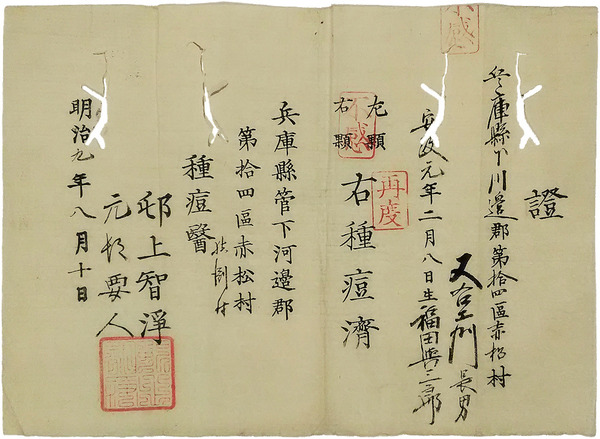 證
兵庫縣下川邉郡第拾四區赤松村
又右エ門長男
安政元年二月八日生福田與三郎
不感
再度
左 顆
右 顆
不感
右種痘濟
兵庫縣管下河邉郡
第拾四區赤松村
種痘醫
邨上智淨
元村要人
明治九年八月十日